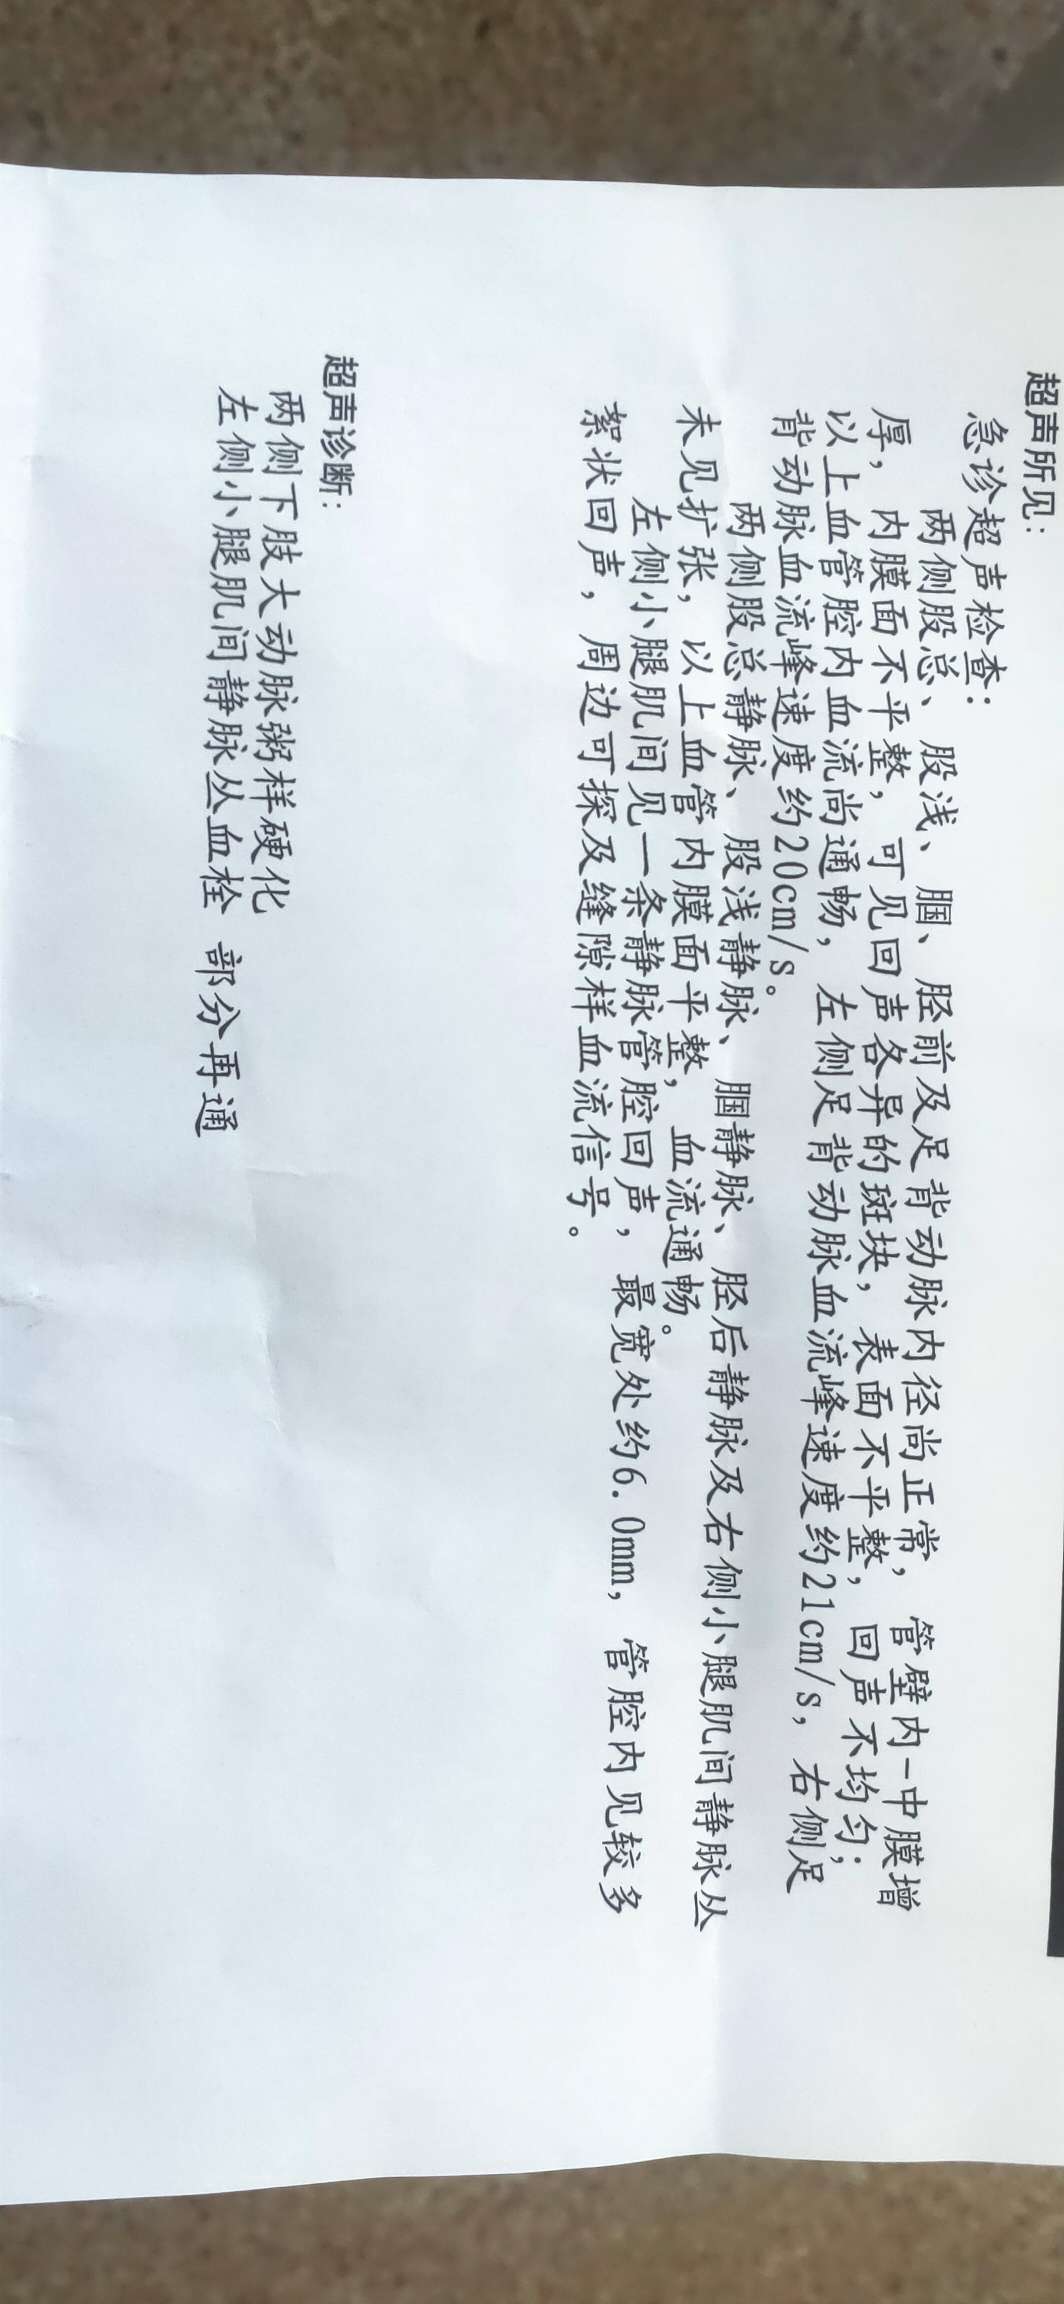 超声所见：
急诊超声检查：
两侧股总、股浅、腘、胫前及足背动脉内径尚正常，管壁内-中膜增
厚，内膜面不平整，可见回声各异的斑块，表面不平整，回声不均匀；
以上血管腔内血流尚通畅，左侧足背动脉血流峰速度约21cm/s，右侧足
背动脉血流峰速度约20cm/s。
两侧股总静脉、股浅静脉、腘静脉、胫后静脉及右侧小腿肌间静脉丛
未见扩张，以上血管内膜面平整，血流通畅。
左侧小腿肌间见一条静脉管腔回声，最宽处约6.0mm，管腔内见较多
絮状回声，周边可探及缝隙样血流信号。
超声诊断：
两侧下肢大动脉粥样硬化
左侧小腿肌间静脉丛血栓 部分再通